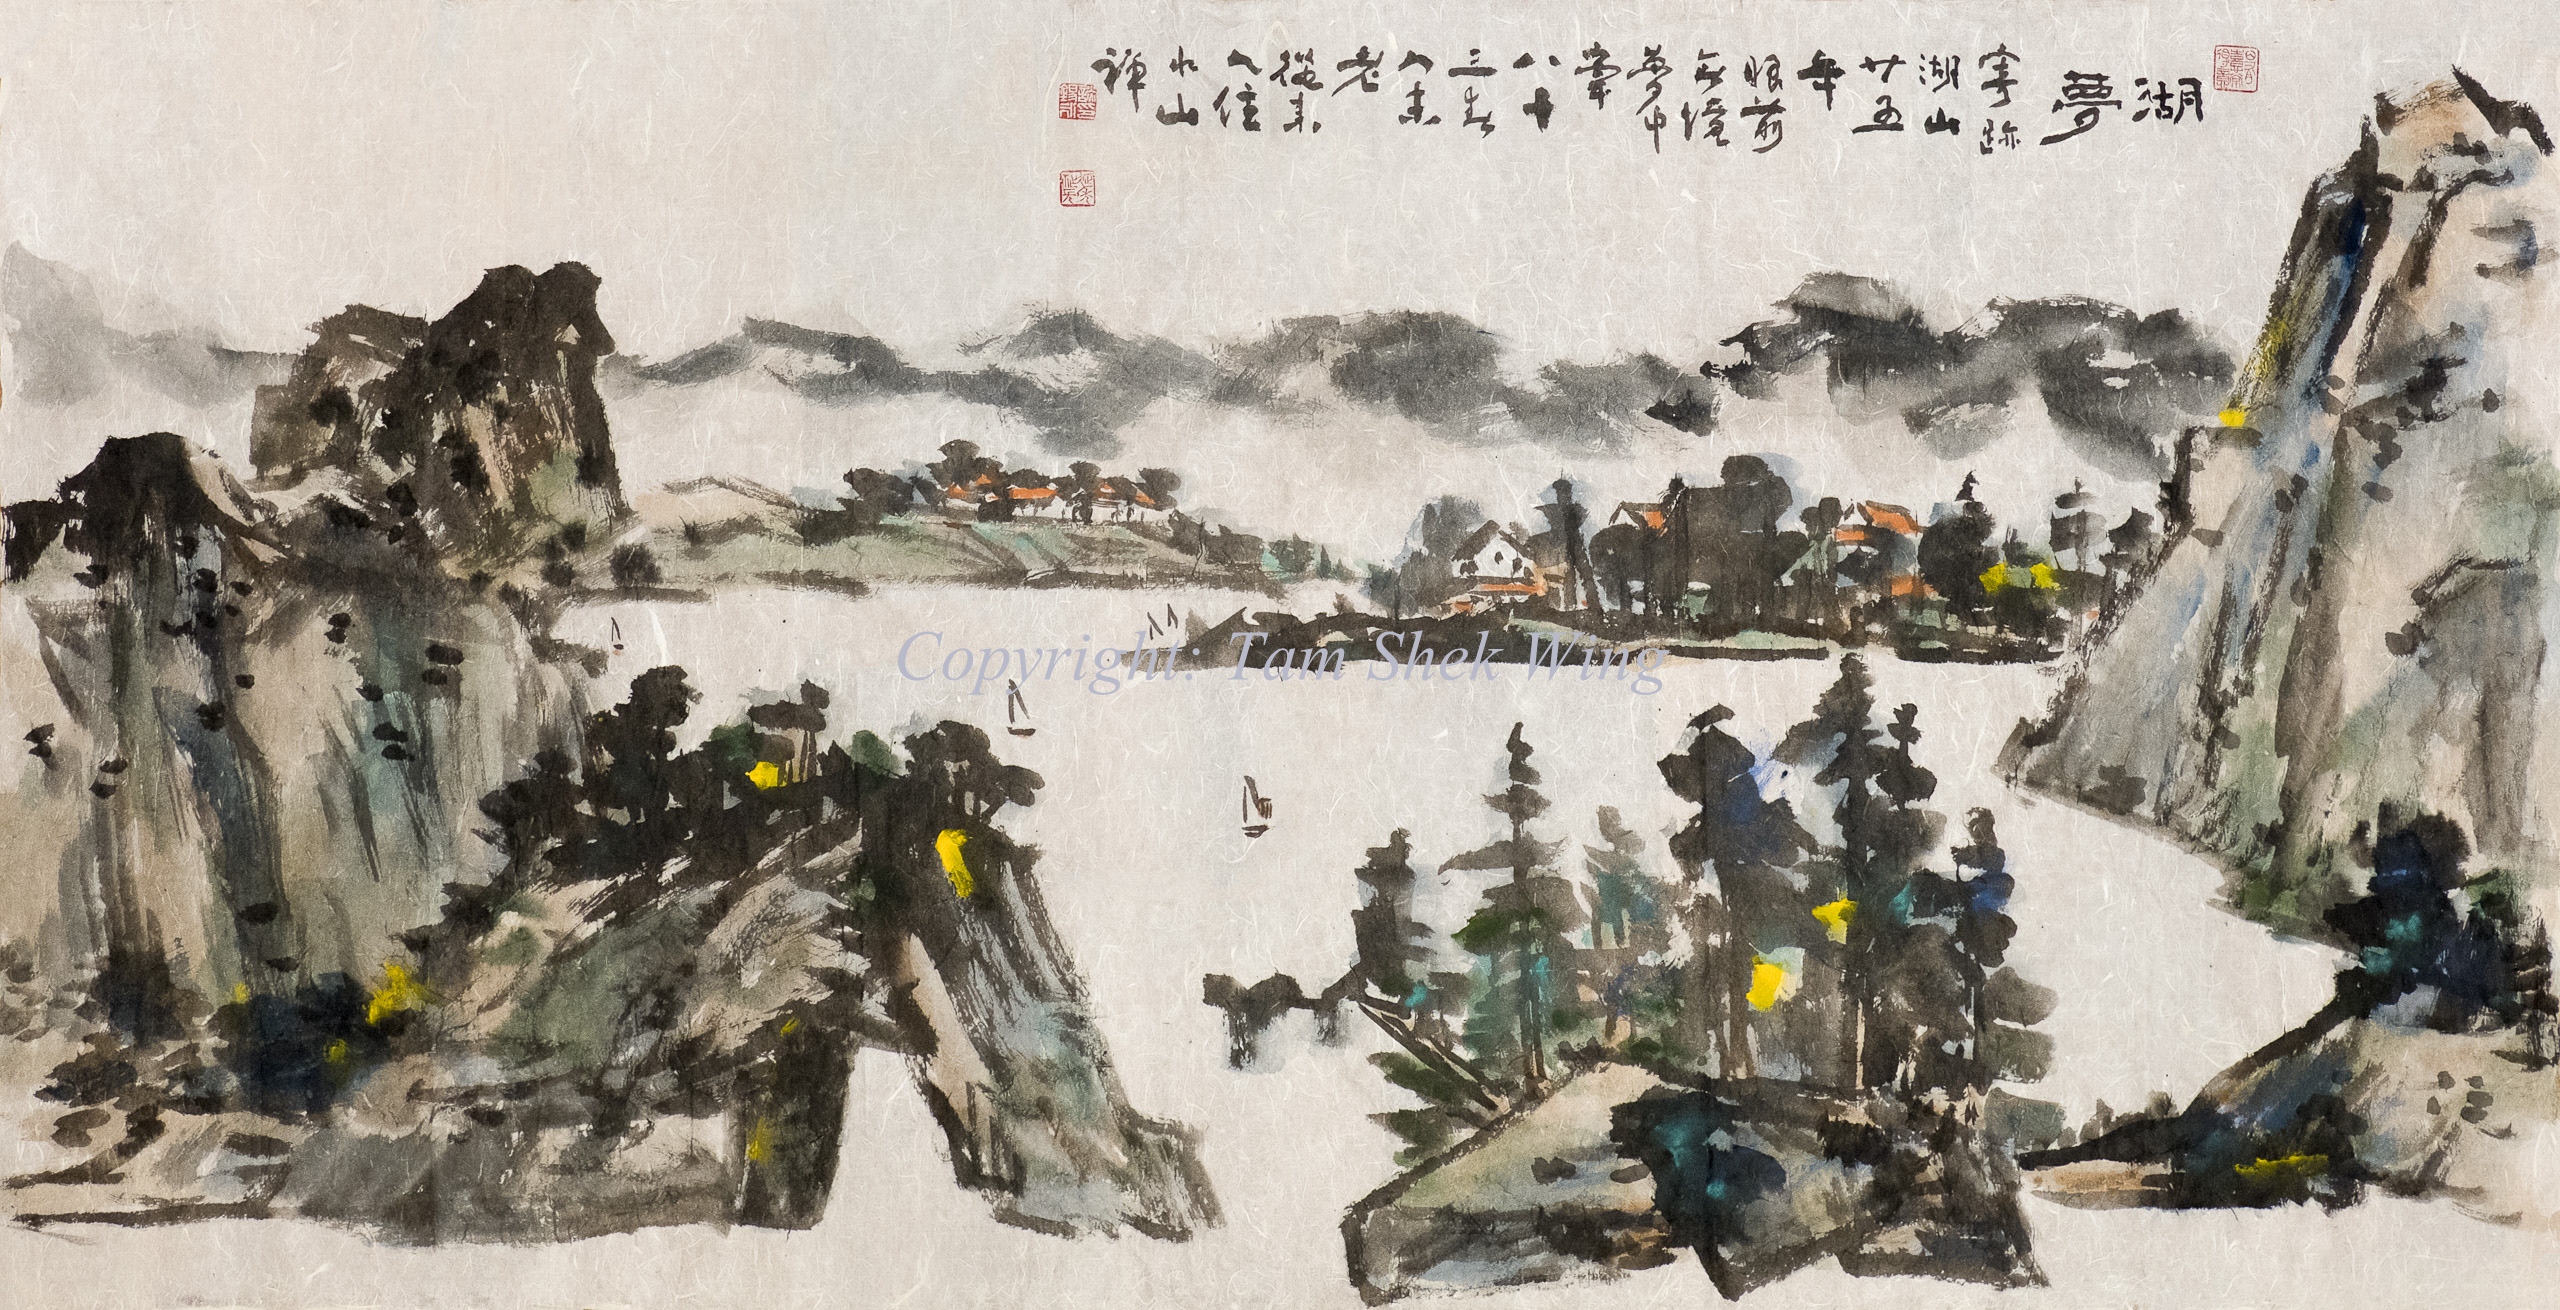 湖
夢
寄跡
湖山
廿五
年
眼前
境
夢中
牽
八十
三春
人未
老
從來
水山
禪
Copyright: Tam Shek Wing